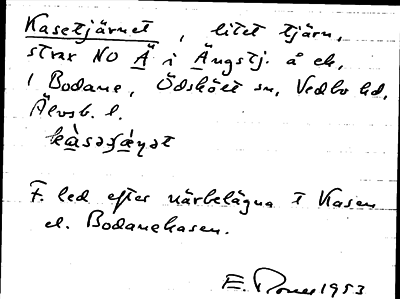 Kasetjärnet, litet tjärn,
strax NO Ä i Ängstj. å ek,
1 Bodane, Ödskölt sn, Vedbo hd,
Älvsb. l.
F. led efter närbelägna t Kasen
el. Bodanekasen.
E. 1953